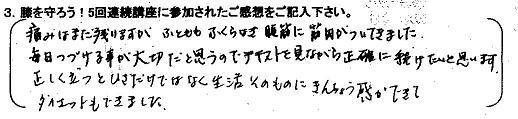 3. 膝を守ろう！5回連続講座に参加されたご感想をご記入下さい。
痛みはまだ残りますが ふともも ふくらはぎ 腹筋に 筋肉がついてきました。
毎日つづける事が大切だと思うのでテキストを見ながら正確に続けたいと思います
正しく立つとひざだけではなく生活そのものにきんちょう感ができて
ダイエットもできました。